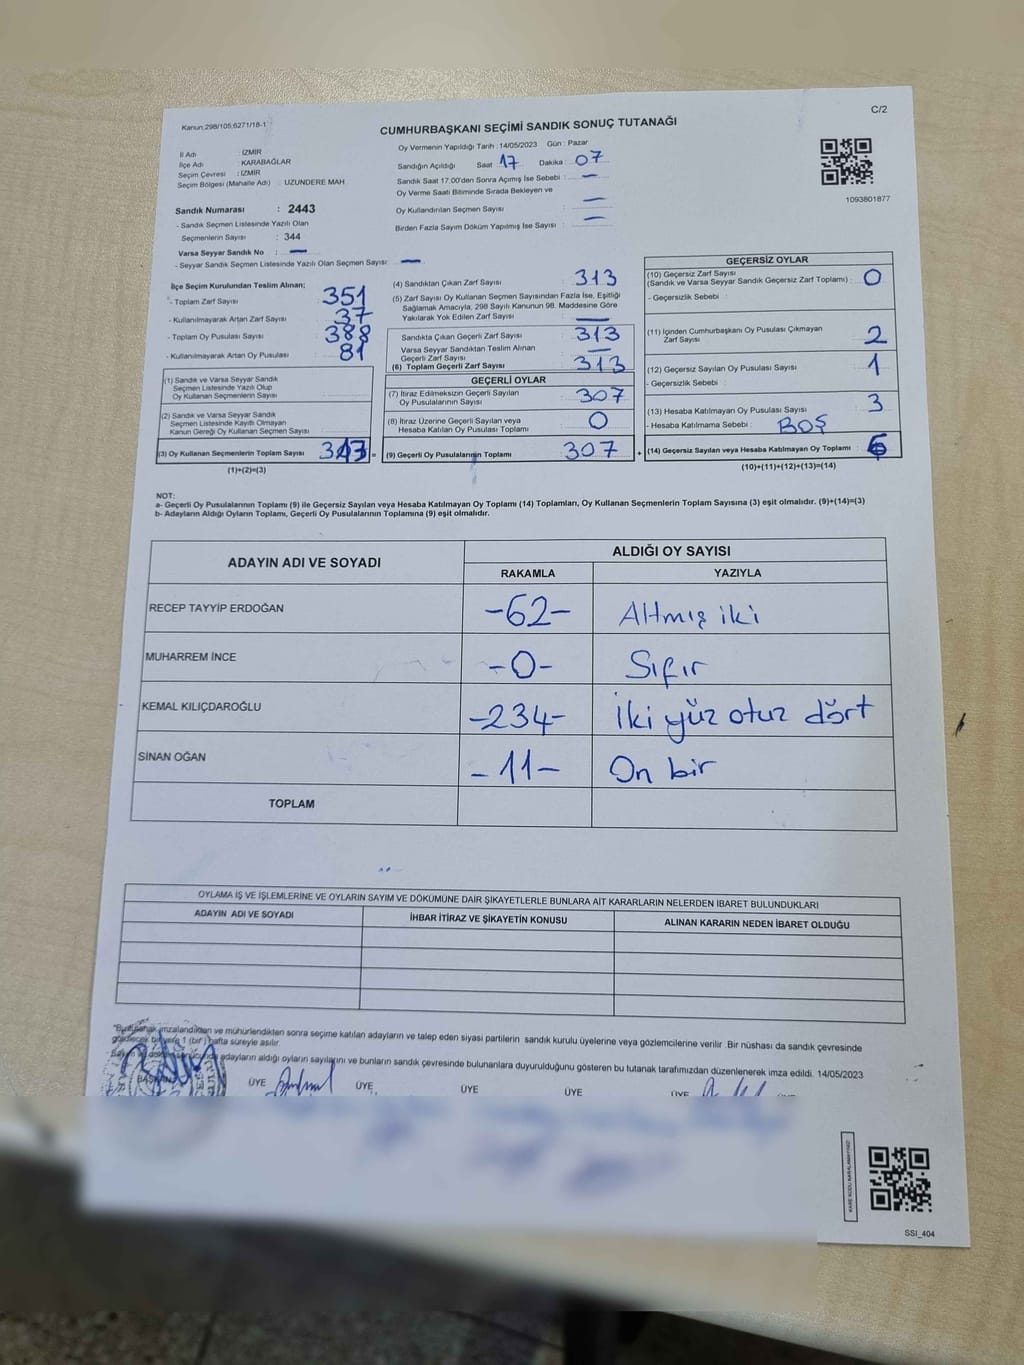 C/2
Kanun:298/105;6271/18-1
CUMHURBAŞKANI SEÇİMİ SANDIK SONUÇ TUTANAĞI
İl Adı : İZMİR
İlçe Adı : KARABAĞLAR
Seçim Çevresi : İZMİR
Seçim Bölgesi (Mahalle Adı) : UZUNDERE MAH
Sandık Numarası : 2443
- Sandık Seçmen Listesinde Yazılı Olan
Seçmenlerin Sayısı : 344
Varsa Seyyar Sandık No : —
- Seyyar Sandık Seçmen Listesinde Yazılı Olan Seçmen Sayısı: —
Oy Vermenin Yapıldığı Tarih : 14/05/2023 Gün : Pazar
Sandığın Açıldığı Saat 17 Dakika 07
Sandık Saat 17:00'den Sonra Açımış İse Sebebi : —
Oy Verme Saati Bitiminde Sırada Bekleyen ve
Oy Kullandırılan Seçmen Sayısı : —
Birden Fazla Sayım Döküm Yapılmış İse Sayısı : —
1093801877
İlçe Seçim Kurulundan Teslim Alınan;
- Toplam Zarf Sayısı : 351
- Kullanılmayarak Artan Zarf Sayısı : 37
- Toplam Oy Pusulası Sayısı : 388
- Kullanılmayarak Artan Oy Pusulası : 81
(1) Sandık ve Varsa Seyyar Sandık
Seçmen Listesinde Yazılı Olup
Oy Kullanan Seçmenlerin Sayısı :
(2) Sandık ve Varsa Seyyar Sandık
Seçmen Listesinde Kayıtlı Olmayan
Kanun Gereği Oy Kullanan Seçmen Sayısı :
(3) Oy Kullanan Seçmenlerin Toplam Sayısı =
(1)+(2)=(3)
(4) Sandıktan Çıkan Zarf Sayısı : 313
(5) Zarf Sayısı Oy Kullanan Seçmen Sayısından Fazla İse, Eşitliği
Sağlamak Amacıyla, 298 Sayılı Kanunun 98. Maddesine Göre
Yakılarak Yok Edilen Zarf Sayısı : —
Sandıkta Çıkan Geçerli Zarf Sayısı : 313
Varsa Seyyar Sandıktan Teslim Alınan
Geçerli Zarf Sayısı : —
(6) Toplam Geçerli Zarf Sayısı : 313
GEÇERLİ OYLAR
(7) İtiraz Edilmeksizin Geçerli Sayılan
Oy Pusulalarının Sayısı : 307
(8) İtiraz Üzerine Geçerli Sayılan veya
Hesaba Katılan Oy Pusulası Toplamı : 0
(9) Geçerli Oy Pusulalarının Toplamı : 307 +
GEÇERSİZ OYLAR
(10) Geçersiz Zarf Sayısı
(Sandık ve Varsa Seyyar Sandık Geçersiz Zarf Toplamı) : 0
- Geçersizlik Sebebi :
(11) İçinden Cumhurbaşkanı Oy Pusulası Çıkmayan
Zarf Sayısı : 2
(12) Geçersiz Sayılan Oy Pusulası Sayısı : 1
- Geçersizlik Sebebi :
(13) Hesaba Katılmayan Oy Pusulası Sayısı : 3
- Hesaba Katılmama Sebebi : BOŞ
(14) Geçersiz Sayılan veya Hesaba Katılmayan Oy Toplamı : 6
(10)+(11)+(12)+(13)=(14)
NOT:
a- Geçerli Oy Pusulalarının Toplamı (9) ile Geçersiz Sayılan veya Hesaba Katılmayan Oy Toplamı (14) Toplamları, Oy Kullanan Seçmenlerin Toplam Sayısına (3) eşit olmalıdır. (9)+(14)=(3)
b- Adayların Aldığı Oyların Toplamı, Geçerli Oy Pusulalarının Toplamına (9) eşit olmalıdır.
ADAYIN ADI VE SOYADI ALDIĞI OY SAYISI
RAKAMLA YAZIYLA
RECEP TAYYİP ERDOĞAN -62- Altmış iki
MUHARREM İNCE -0- Sıfır
KEMAL KILIÇDAROĞLU -234- İki yüz otuz dört
SİNAN OĞAN -11- On bir
TOPLAM
OYLAMA İŞ VE İŞLEMLERİNE VE OYLARIN SAYIM VE DÖKÜMÜNE DAİR ŞİKAYETLERLE BUNLARA AİT KARARLARIN NELERDEN İBARET BULUNDUKLARI
ADAYIN ADI VE SOYADI İHBAR İTİRAZ VE ŞİKAYETİN KONUSU ALINAN KARARIN NEDEN İBARET OLDUĞU
imzalandıktan ve mühürlendikten sonra seçime katılan adayların ve talep eden siyasi partilerin sandık kurulu üyelerine veya gözlemcilerine verilir .Bir nüshası da sandık çevresinde
bir yere 1 (bir) hafta süreyle asılır.
adayların aldığı oyların sayılarını ve bunların sandık çevresinde bulunanlara duyurulduğunu gösteren bu tutanak tarafımızdan düzenlenerek imza edildi. 14/05/2023
BAŞKAN ÜYE ÜYE ÜYE ÜYE ÜYE ÜYE
SSİ_404